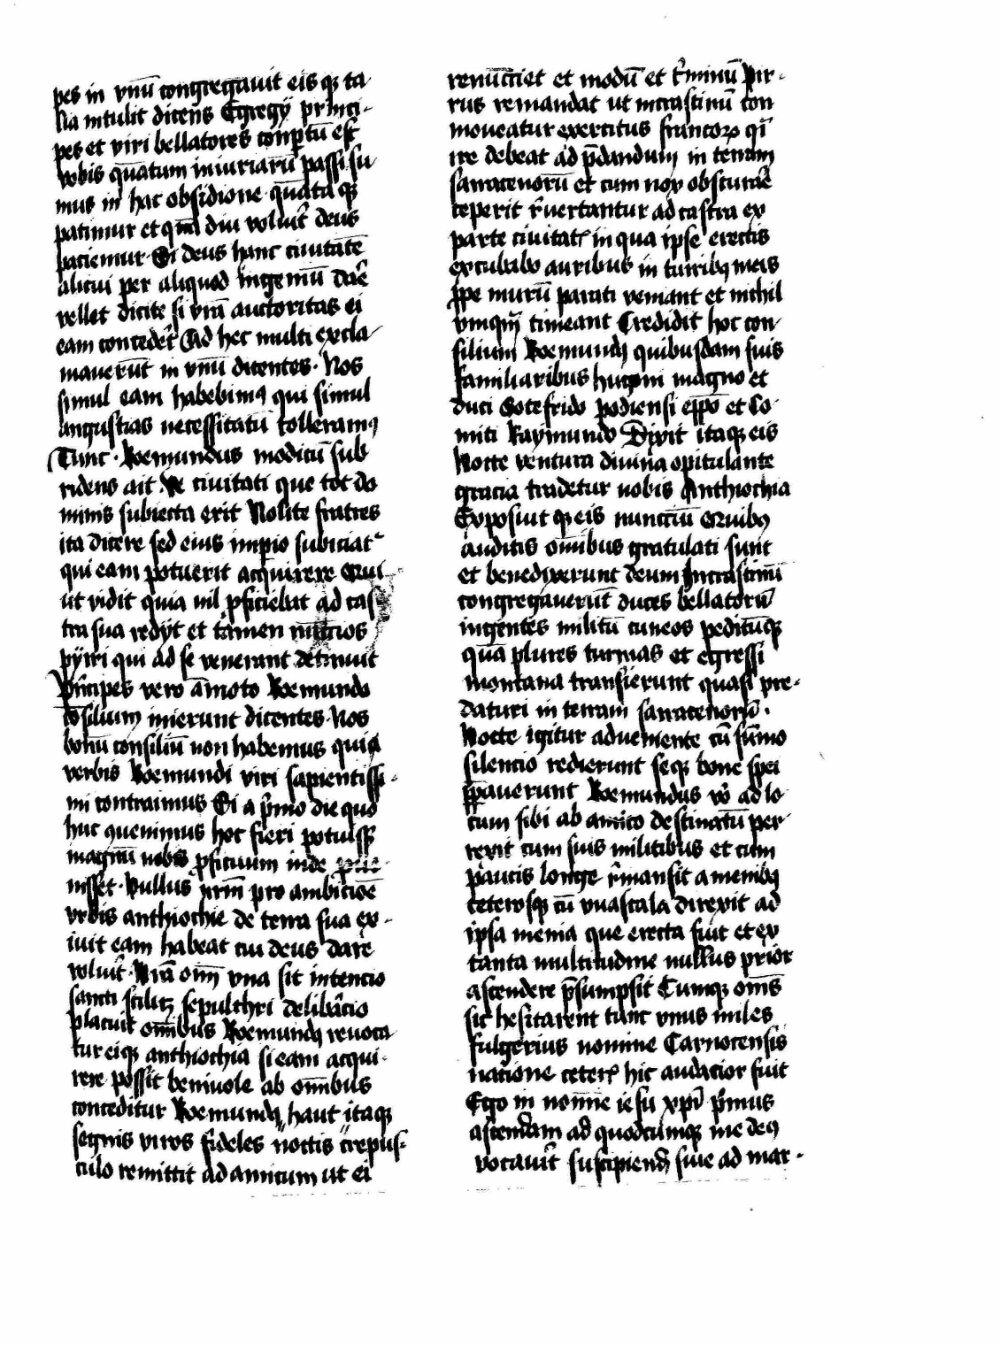 pes in vnū congregauit eis qꝫ ta-
lia intulit dicens Egregij princi-
pes et viri bellatores conptū est
vobis quātum iniuriarū passi su
mus in hac obsidione quāta qꝫ
patimur et qm̄ diu voluit deus
paciemur Si deus hanc ciuitatē
alicui per aliquod ingeniū daē
vellet dicite si vrā auctoritas ei
eam concedet Ad hec multi excla-
mauerūt in vnū dicentes Nos
simul eam habebimꝰ qui simul
angustias necessitatū tolleramꝰ
Tunc Boemundus modicū sub
ridens ait Ve ciuitati que tot do
minis subiecta erit Nolite fratres
ita dicere sed eius impio subiciat᷑
qui eam potuerit acquirere Qui
ut vidit quia nil ꝓficiebat ad cas
tra sua redijt et tamen nūcios
pyrri qui ad se venerant detinuit
Principes vero āmoto Boemundo
cōsilium inierunt dicentes Nos
bonū consiliū non habemus quia
verbis Boemundi viri sapientissi-
mi contraimus Si a p̄mo die quo
huc ꝯuenimus hoc fieri potuissꝫ
magnū nobis ꝓficuum inde
nisset Nullus nrm̄ pro ambicioē
vrbis anthiochie de terra sua ex-
iuit eam habeat cui deus dare
voluit Nrā om̄ vna sit intencio
sancti scilicꝫ sepulchri delibācio
placuit om̄ibus Boemundꝰ reuoca
tur eiqꝫ anthiochia si eam acqui-
rere possit beniuole ab om̄ibus
conceditur Boemundꝰ haut itaqꝫ
segnis viros fideles noctis crepus-
culo remittit ad amicum ut ei
renūciet et modū et t̄minū Pir-
rus remandat ut incrastinū con
moueatur exercitus francoꝝ q̄i
ire debeat ad p̄dandum in terram
sarracenorū et cum nox obscurae
ceperit r̄uertantur ad castra ex
parte ciuitatꝭ in qua ipse erectis
excubabo auribus in turribꝫ meis
ꝓpe murū parati veniant et nichil
vmqꝫ timeant Credidit hoc con-
silium Boemundꝰ quibusdam suis
familiaribus hugoni magno et
duci Gotefrido podiensi ep̄o et Co-
miti Raymundo Dixit itaqꝫ eis
Nocte ventura diuina opitulante
gracia tradetur nobis Anthiochia
Exposuit qꝫ eis nunciū Quibꝰ
auditis om̄ibus gratulati sunt
et benedixerunt deum Incrastinū
congregauerūt duces bellatorū
ingentes militū cuneos peditūqꝫ
quā plures turmas et egressi
montana transierunt quasi pre-
daturi in terram sarracenorū
Nocte igitur adueniente cū sūmo
silencio redierunt seqꝫ bone spei
p̄pauerunt Boemundus vo ad lo
cum sibi ab amico destinatū per-
rexit cum suis militibus et cum
paucis longe r̄mansit a menibꝫ
ceterosqꝫ cū vna scala direxit ad
ipsa menia que erecta fuit et ex
tanta multitudine nullus prior
ascendere p̄sumpsit Cumqꝫ om̄s
sic hesitarent tunc vnus miles
fulgerius nomine Carnotensis
nacione ceterꝭ hic audacior fuit
Ego in noīne iesu xpi p̄mus
ascendam ad quodcumqꝫ me deꝰ
vocauit suscipiend siue ad mar-